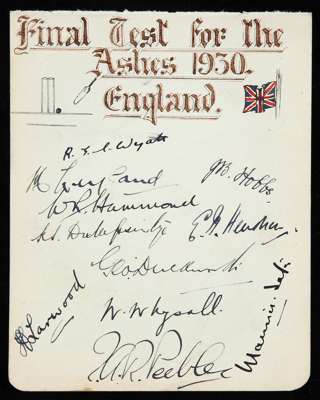 Final Test for the
Ashes 1930.
England.
R. E. S. Wyatt
M Leyland
J B Hobbs
W R Hammond
K. S. Duleepsinhji
E. H. Hendren
Geo Duckworth
H Larwood
W. Whysall.
Maurice Tate
I. A. R. Peebles